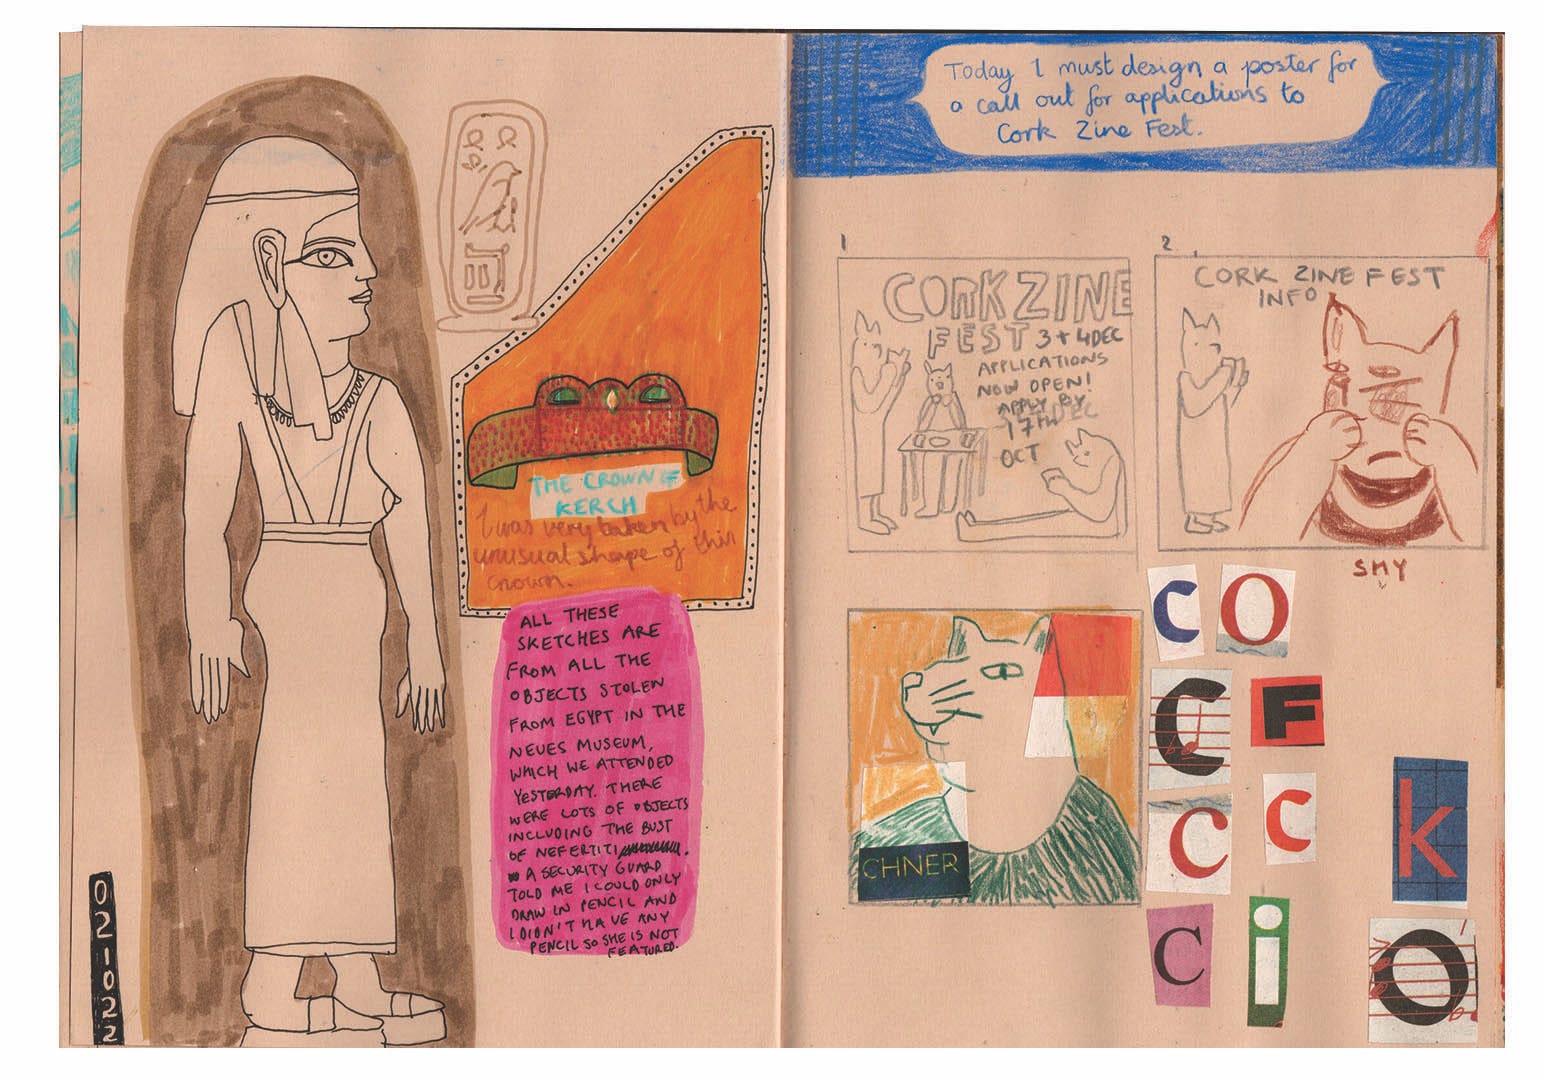 THE CROWN OF
KERCH
I was very taken by the
unusual shape of this
crown.
ALL THESE
SKETCHES ARE
FROM ALL THE
OBJECTS STOLEN
FROM EGYPT IN THE
NEUES MUSEUM,
WHICH WE ATTENDED
YESTERDAY. THERE
WERE LOTS OF OBJECTS
INCLUDING THE BUST
OF NEFERTITI.
A SECURITY GUARD
TOLD ME I COULD ONLY
DRAW IN PENCIL AND
I DIDN'T HAVE ANY
PENCIL SO SHE IS NOT
FEATURED.
021022
Today I must design a poster for
a call out for applications to
Cork Zine Fest.
1
CORK ZINE
FEST 3+4 DEC
APPLICATIONS
NOW OPEN!
APPLY BY
17TH
OCT
2.
CORK ZINE FEST
INFO
SHY
CHNER
C O
C F
C C K
C i O